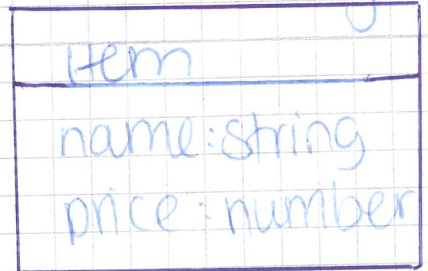 Item
name:string
price:number